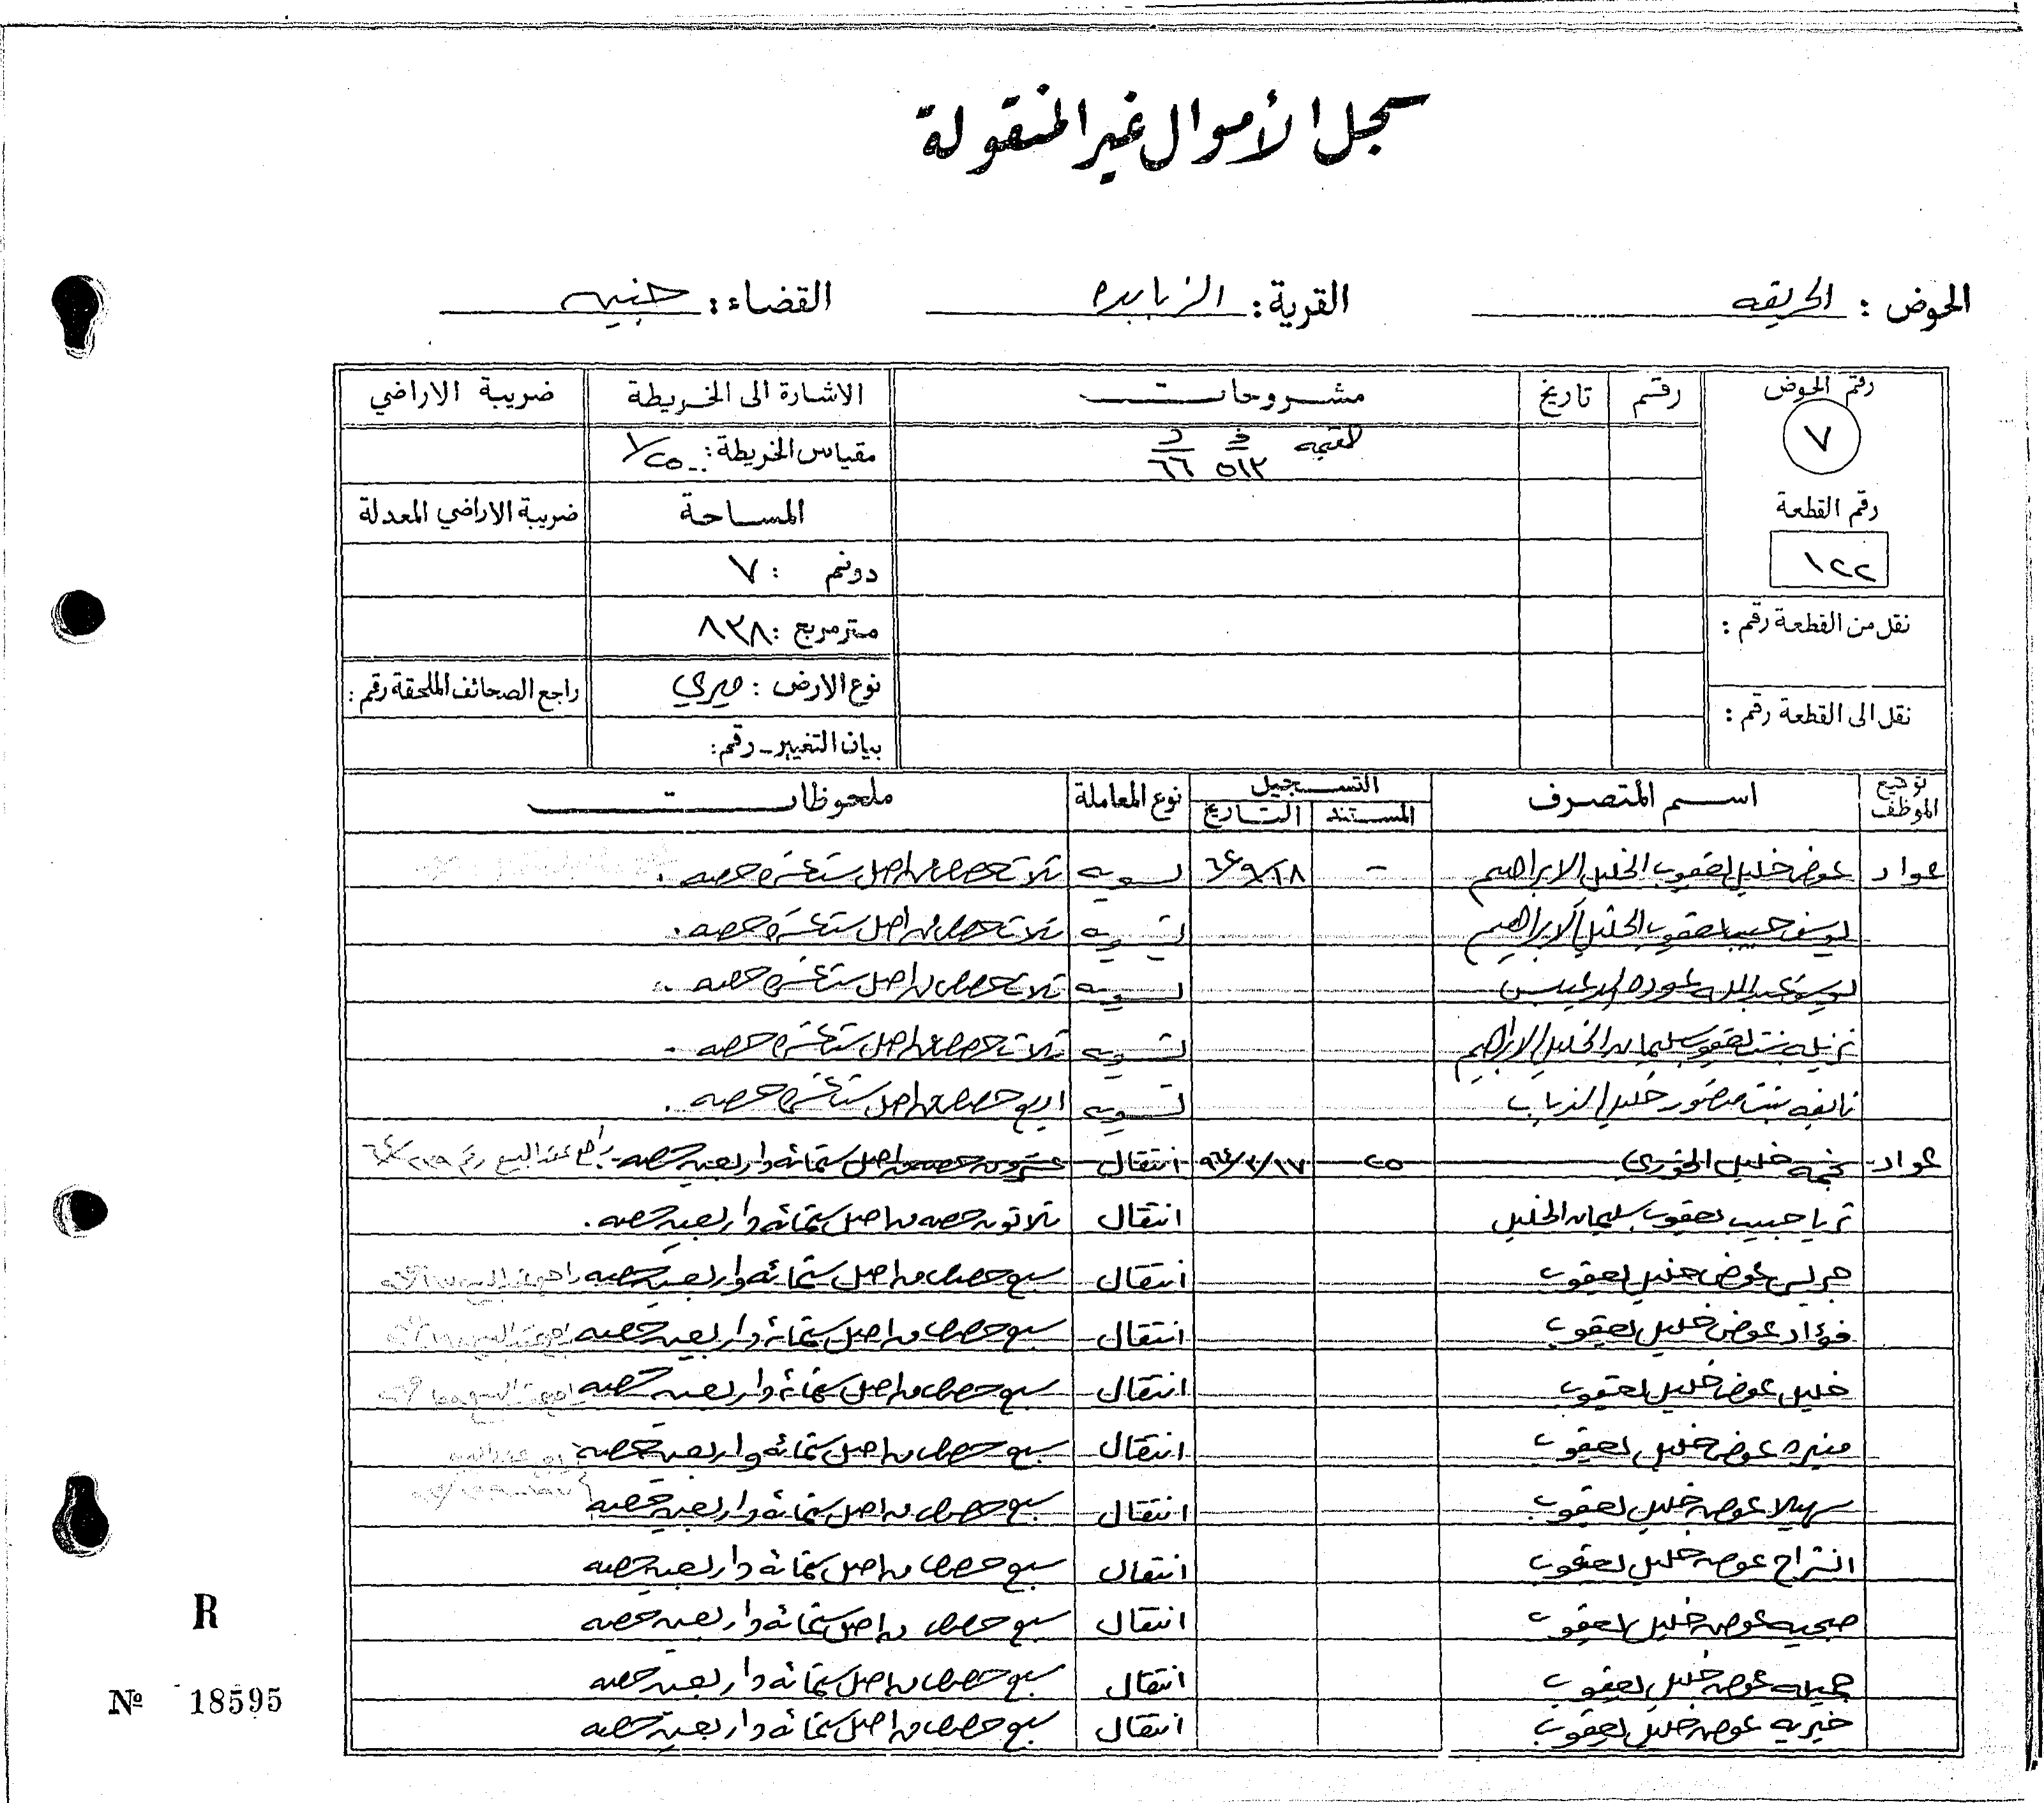 سجل الأموال غير المنقولة
الحوض : الحريقه القرية : الزبابده القضاء : جنين
رقم الحوض رقم تاريخ مشروحات الاشارة الى الخريطة ضريبة الاراضي
٧ القيمه ف د مقياس الخريطة : ١/٢٥٠٠
٥١٢ ٦٦
رقم القطعة المساحة ضريبة الاراضي المعدلة
١٢٢ دونم : ٧
نقل من القطعة رقم : مترمربع : ٨٣٨
نوع الارض : ميري راجع الصحائف الملحقة رقم :
نقل الى القطعة رقم : بيان التغيير - رقم :
توقيع الموظف اسم المتصرف التسجيل نوع المعاملة ملحوظات
المستند التاريخ
عواد عوض خليل يعقوب الخليل الابراهيم - تسويه ثلاث حصص من اصل ستة عشرة حصه .
يوسف حبيب يعقوب الخليل الابراهيم تسويه ثلاث حصص من اصل ستة عشرة حصه .
يوسف عبدالله عوده تسويه ثلاث حصص من اصل ستة عشرة حصه .
نزيله بنت يعقوب سليمان الخليل الابراهيم تسويه ثلاث حصص من اصل ستة عشرة حصه .
نايفه بنت منصور خليل تسويه اربع حصص من اصل ستة عشرة حصه .
عواد نجمه خليل الخوري ٢٥ انتقال عشرون حصه من اصل ستمائة واربعين حصه راجع عقد البيع رقم
ثريا حبيب يعقوب سليمان الخليل انتقال ثلاثون حصه من اصل ستمائة واربعين حصه .
جريس عوض خليل يعقوب انتقال سبع حصص من اصل ستمائة واربعين حصه
فؤاد عوض خليل يعقوب انتقال سبع حصص من اصل ستمائة واربعين حصه
خليل عوض خليل يعقوب انتقال سبع حصص من اصل ستمائة واربعين حصه
منيره عوض خليل يعقوب انتقال سبع حصص من اصل ستمائة واربعين حصه
سهيلا عوض خليل يعقوب انتقال سبع حصص من اصل ستمائة واربعين حصه
انشراح عوض خليل يعقوب انتقال سبع حصص من اصل ستمائة واربعين حصه
صبحيه عوض خليل يعقوب انتقال سبع حصص من اصل ستمائة واربعين حصه
جميله عوض خليل يعقوب انتقال سبع حصص من اصل ستمائة واربعين حصه
خيريه عوض خليل يعقوب انتقال سبع حصص من اصل ستمائة واربعين حصه
R
№ 18595